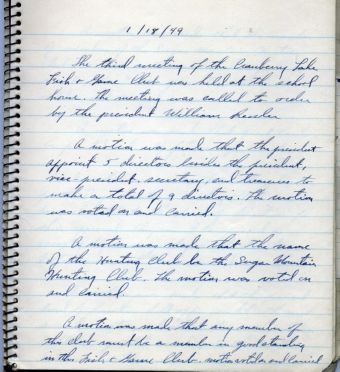 1/18/49
The third meeting of the Cranberry Lake
Fish & Game Club was held at the school
house. The meeting was called to order
by the president William
A motion was made that the president
appoint 5 directors besides the president,
vice-president, secretary, and treasurer to
make a total of 9 directors. The motion
was voted on and carried.
A motion was made that the name
of the Hunting Club be the Sugar Mountain
Hunting Club. The motion was voted on
and carried.
A motion was made that any member of
this club must be a member in good standing
in this Fish & Game Club. motion voted on and carried